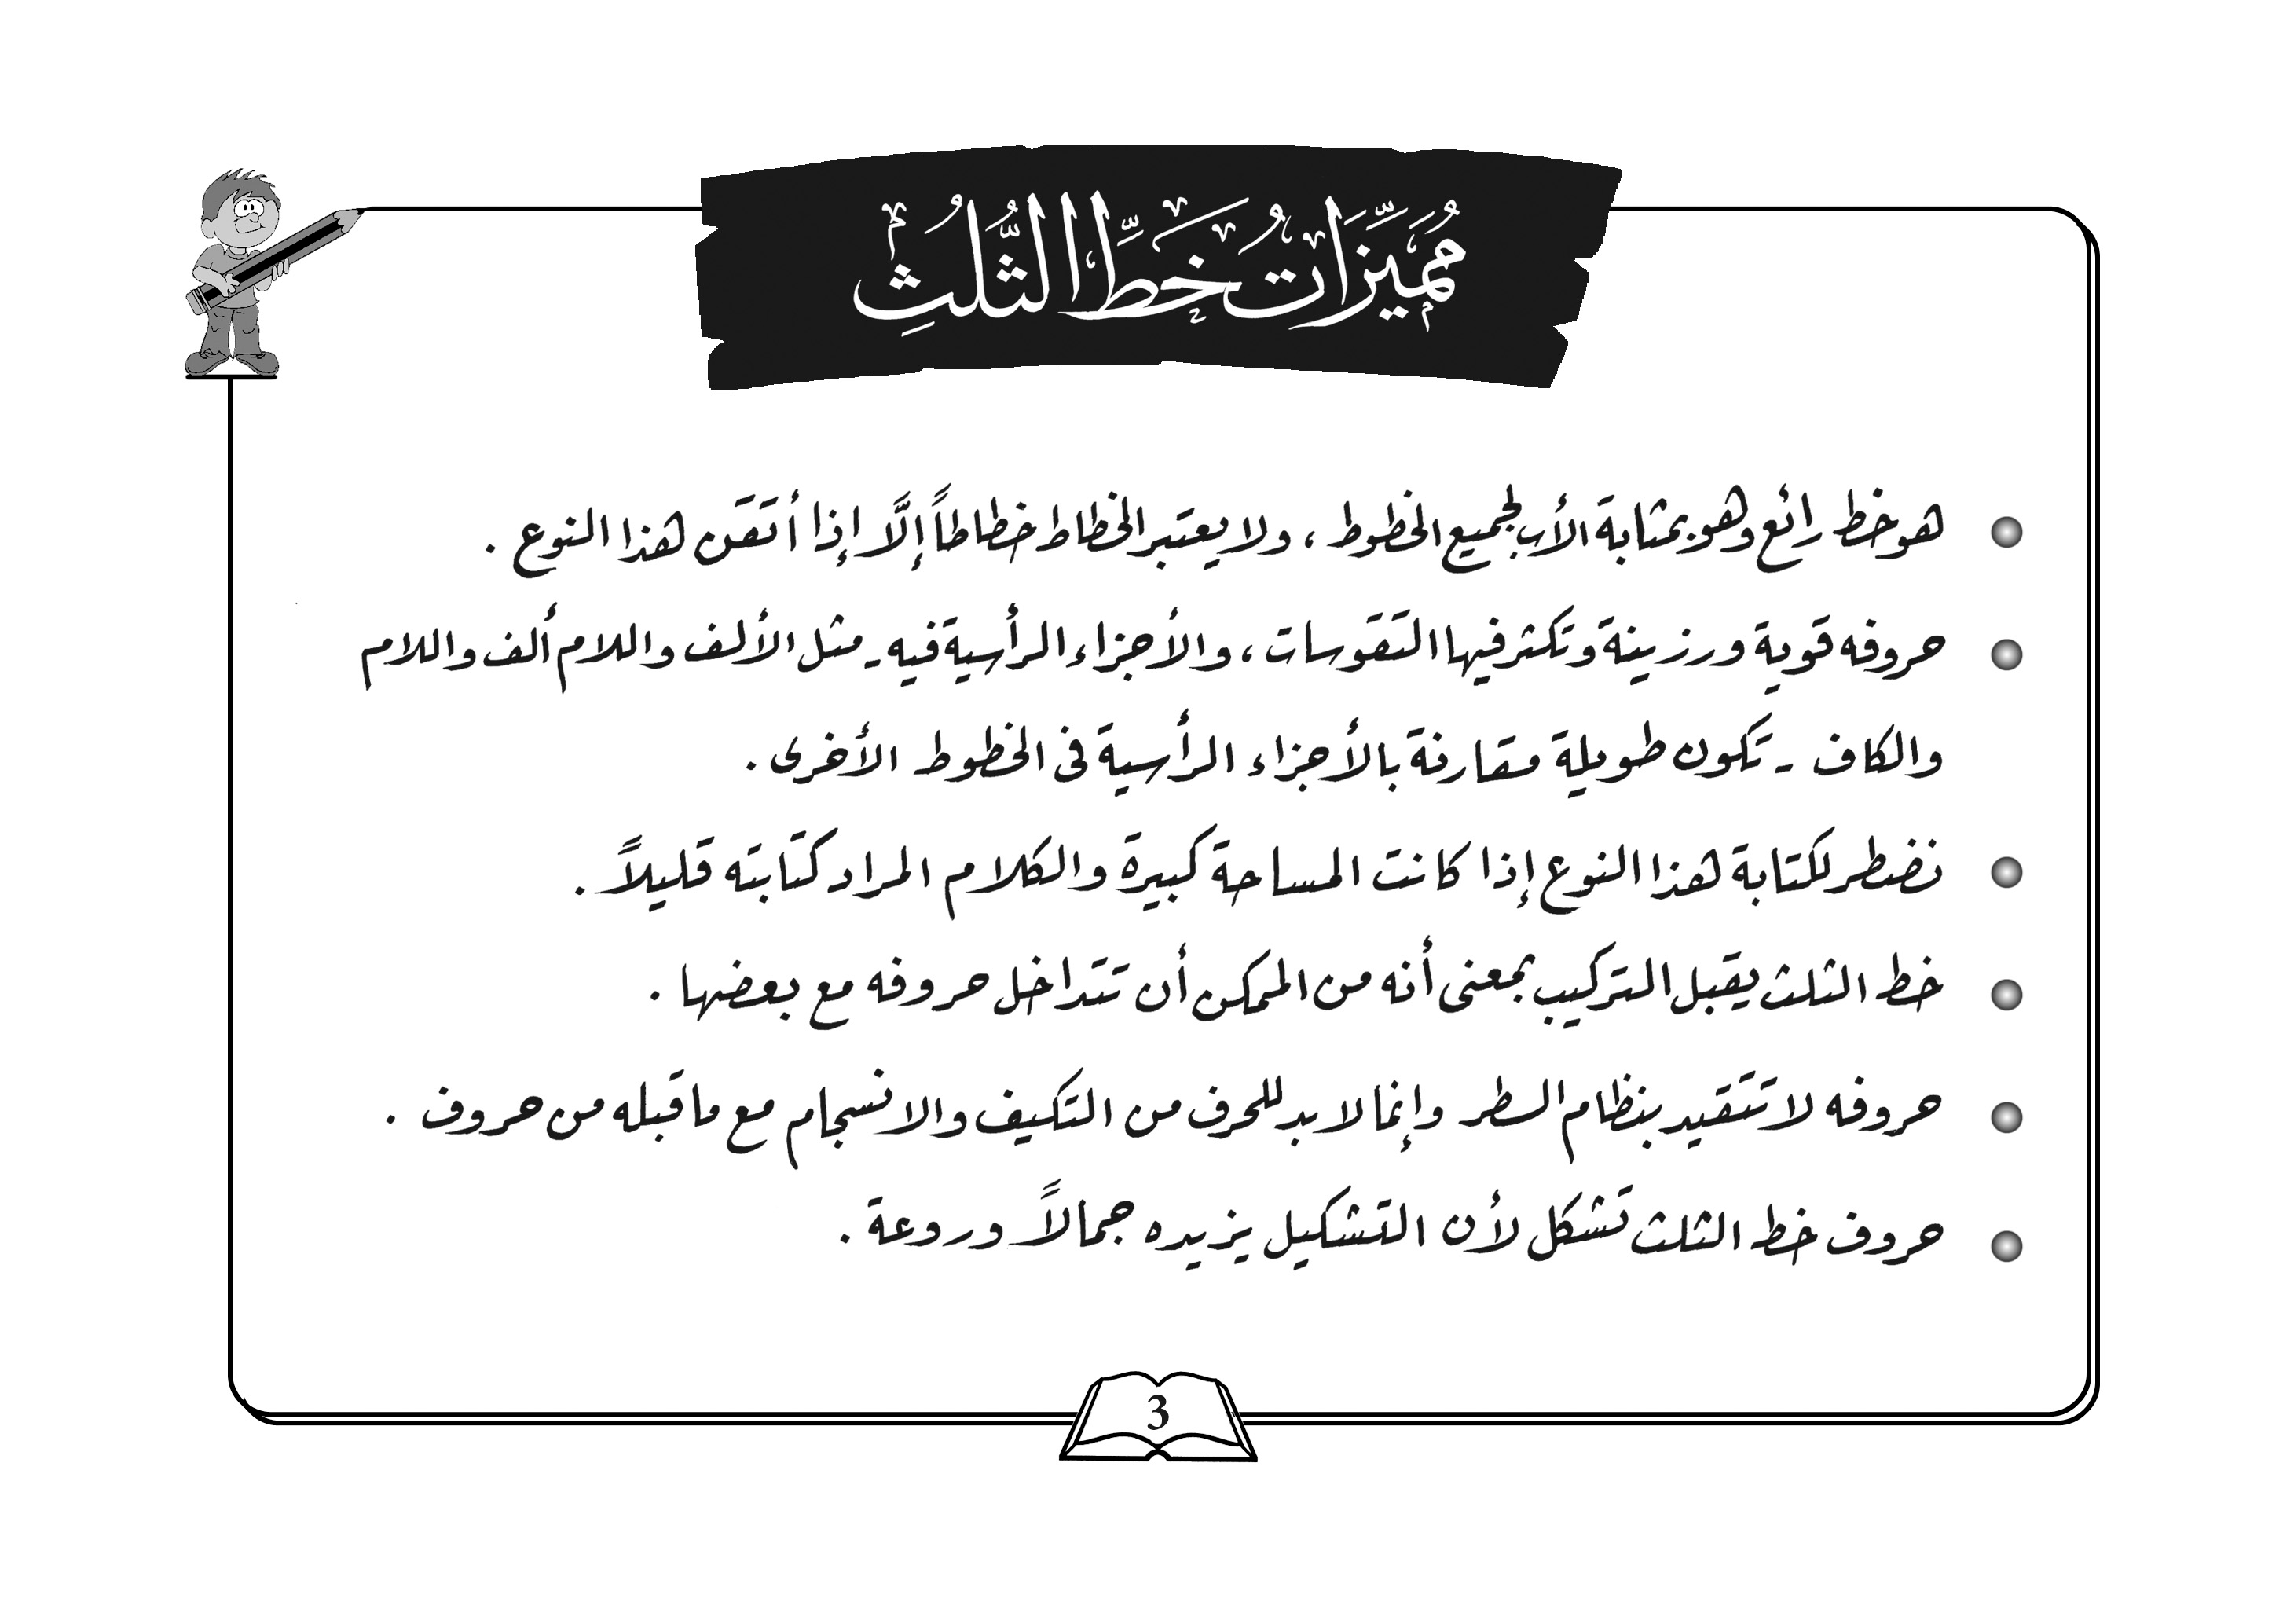 مُمَيِّزَاتُ خَطِّ الثُّلُثِ
هو خط رائع وهو بمثابة الأب لجميع الخطوط ، ولا يعتبر الخطاط خطاطاً إلَّا إذا أتقن هذا النوع .
حروفه قوية ورزينة وتكثر فيها التقوسات ، والأجزاء الرأسية فيه - مثل الألف واللام ألف واللام
والكاف - تكون طويلة مقارنة بالأجزاء الرأسية فى الخطوط الأخرى .
نضطر لكتابة هذا النوع إذا كانت المساحة كبيرة والكلام المراد كتابته قليلاً .
خط الثلث يقبل التركيب بمعنى أنه من الممكن أن تتداخل حروفه مع بعضها .
حروفه لا تتقيد بنظام السطر وإنما لا بد للحرف من التكيف والانسجام مع ما قبله من حروف .
حروف خط الثلث تشكل لأن التشكيل يزيده جمالاً وروعة .
3